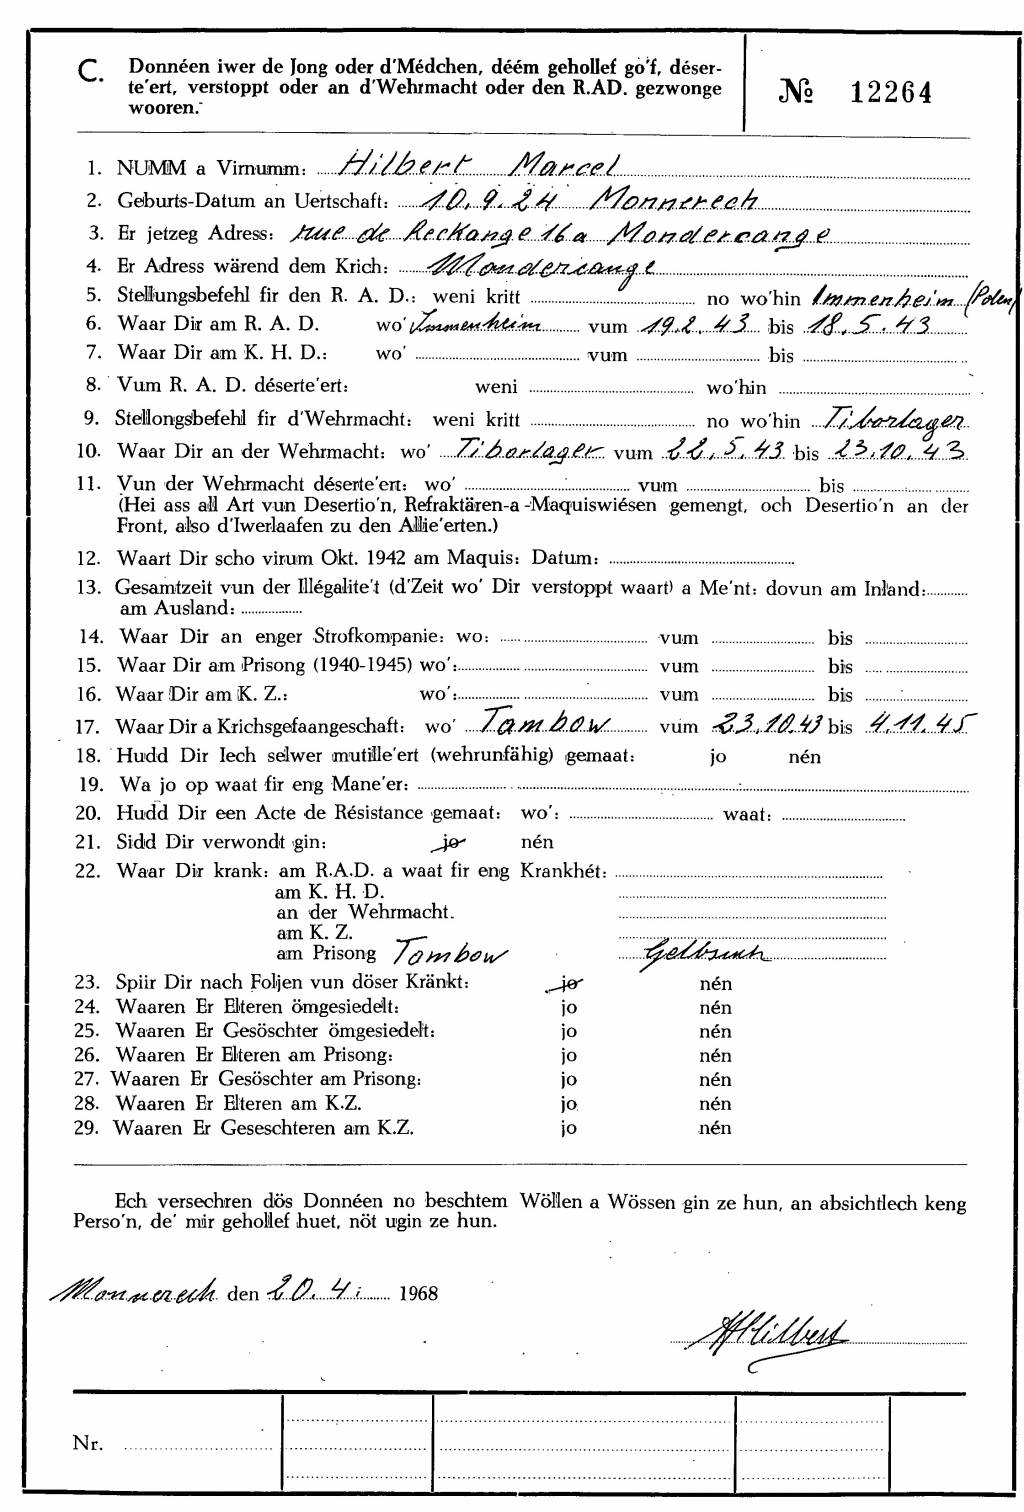 C. Donnéen iwer de Jong oder d'Médchen, déém gehollef go'f, déser-
te'ert, verstoppt oder an d'Wehrmacht oder den R.AD. gezwonge
wooren.
№ 12264
1. NUMM a Virnumm: Hilbert Marcel
2. Geburts-Datum an Uertschaft: 10.9.24 Monnerech
3. Er jetzeg Adress: rue de Reckange 16a Mondercange
4. Er Adress wärend dem Krich: Mondercange
5. Stellungsbefehl fir den R. A. D.: weni kritt no wo'hin Immenheim (Polen)
6. Waar Dir am R. A. D. wo' Immenheim vum 19.2.43 bis 18.5.43
7. Waar Dir am K. H. D.: wo' vum bis
8. Vum R. A. D. déserte'ert: weni wo'hin
9. Stellongsbefehl fir d'Wehrmacht: weni kritt no wo'hin Tiborlager
10. Waar Dir an der Wehrmacht: wo' Tiborlager vum 22.5.43 bis 23.10.43
11. Vun der Wehrmacht déserte'ert: wo' vum bis
(Hei ass all Art vun Desertio'n, Refraktären-a -Maquiswiésen gemengt, och Desertio'n an der
Front, also d'Iwerlaafen zu den Allie'erten.)
12. Waart Dir scho virum Okt. 1942 am Maquis: Datum:
13. Gesamtzeit vun der Illégalite't (d'Zeit wo' Dir verstoppt waart) a Me'nt: dovun am Inland:
am Ausland:
14. Waar Dir an enger Strofkompanie: wo: vum bis
15. Waar Dir am Prisong (1940-1945) wo': vum bis
16. Waar Dir am K. Z.: wo': vum bis
17. Waar Dir a Krichsgefaangeschaft: wo' Tambow vum 23.10.43 bis 4.11.45
18. Hudd Dir Iech selwer mutille'ert (wehrunfähig) gemaat: jo nén
19. Wa jo op waat fir eng Mane'er:
20. Hudd Dir een Acte de Résistance gemaat: wo': waat:
21. Sidd Dir verwondt gin: jo nén
22. Waar Dir krank: am R.A.D. a waat fir eng Krankhét:
am K. H. D.
an der Wehrmacht.
am K. Z.
am Prisong Tambow Gelbsuch
23. Spiir Dir nach Foljen vun döser Kränkt: jo nén
24. Waaren Er Elteren ömgesiedelt: jo nén
25. Waaren Er Gesöschter ömgesiedelt: jo nén
26. Waaren Er Elteren am Prisong: jo nén
27. Waaren Er Gesöschter am Prisong: jo nén
28. Waaren Er Elteren am K.Z. jo nén
29. Waaren Er Geseschteren am K.Z. jo nén
Ech versechren dös Donnéen no beschtem Wöllen a Wössen gin ze hun, an absichtlech keng
Perso'n, de' mir gehollef huet, nöt ugin ze hun.
Monnerech den 20.4. 1968
Hilbert
Nr.